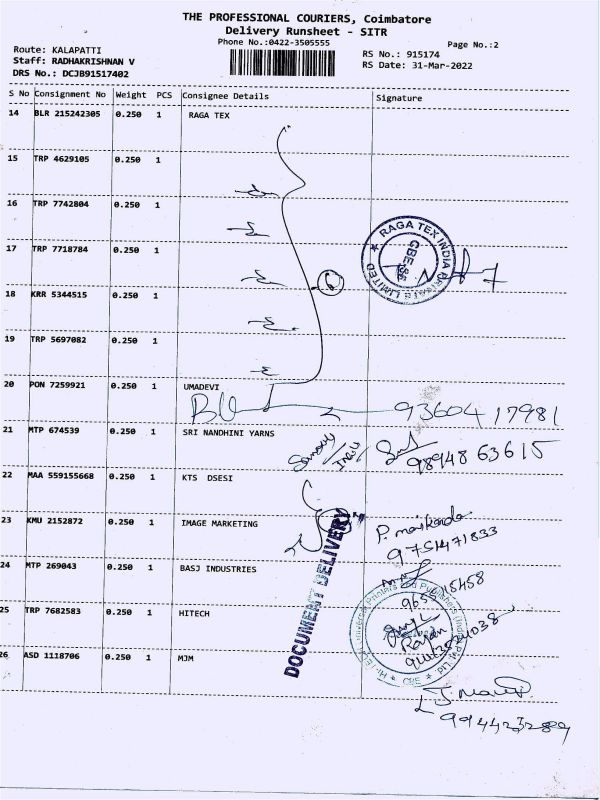 THE PROFESSIONAL COURIERS, Coimbatore
Delivery Runsheet - SITR
Phone No.:0422-3505555
Page No.:2
Route: KALAPATTI
Staff: RADHAKRISHNAN V
DRS No.: DCJB91517402
RS No.: 915174
RS Date: 31-Mar-2022
S No Consignment No Weight PCS Consignee Details Signature
14 BLR 215242305 0.250 1 RAGA TEX
15 TRP 4629105 0.250 1
16 TRP 7742804 0.250 1
17 TRP 7718784 0.250 1
RAGA TEX INDIA PRIVATE LIMITED
CBE
18 KRR 5344515 0.250 1
19 TRP 5697082 0.250 1
20 PON 7259921 0.250 1 UMADEVI
93604 17981
21 MTP 674539 0.250 1 SRI NANDHINI YARNS
98948 63615
22 MAA 559155668 0.250 1 KTS DSESI
23 KMU 2152872 0.250 1 IMAGE MARKETING
9751471833
DOCUMENT DELIVERY
24 MTP 269043 0.250 1 BASJ INDUSTRIES
25 TRP 7682583 0.250 1 HITECH
Rajan
CBE
26 ASD 1118706 0.250 1 MJM